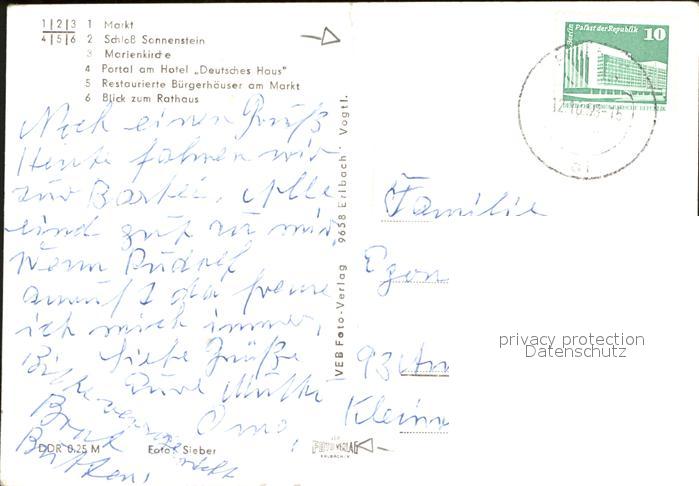 1|2|3 1 Markt
4|5|6 2 Schloß Sonnenstein
3 Marienkirche
4 Portal am Hotel „Deutsches Haus"
5 Restaurierte Bürgerhäuser am Markt
6 Blick zum Rathaus
Noch einen Gruß
Heute fahren wir
zur
Alle
sind gut zu mir,
Wenn Rudolf
anruft da freue
ich mich immer,
Liebe Grüße
Eure Mutti
Oma,
Bitte
nicht
DDR 0,25 M Foto: Sieber
VEB Foto-Verlag 9658 Erlbach Vogtl.
FOTO-VERLAG
ERLBACH/V.
Berlin Palast der Republik
10
Familie
Egon
93
Klein
privacy protection
Datenschutz